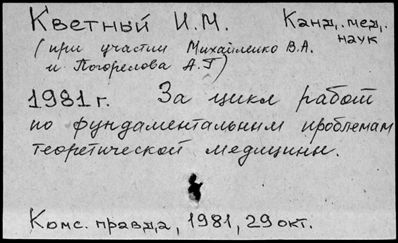 Кветный И.М. Канд. мед. наук
(при участии Михайленко В.А.
и Погорелова А.Г)
1981 г. За цикл работ
по фундаментальным проблемам
теоретической медицины.
Комс. правда, 1981, 29 окт.